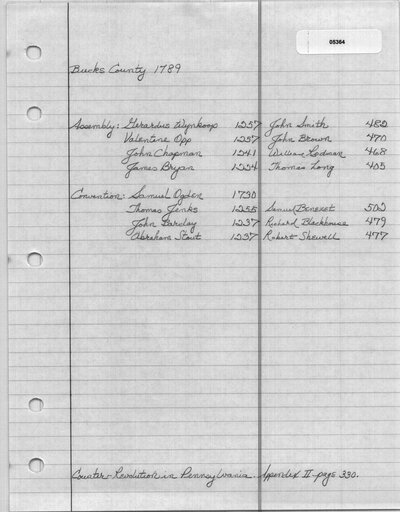 05364
Bucks County 1789
Assembly: Gerardus Wynkoop 1257 John Smith 482
Valentine Opp 1257 John Brown 470
John Chapman 1241 William Rodman 468
James Bryan 1224 Thomas Long 405
Convention: Samuel Ogden 1730
Thomas Jenks 1255 Samuel Benezet 502
John Barclay 1237 Richard Blackhouse 479
Abraham Stout 1237 Robert Shewell 477
Counter-Revolution in Pennsylvania. Appendix II page 330.